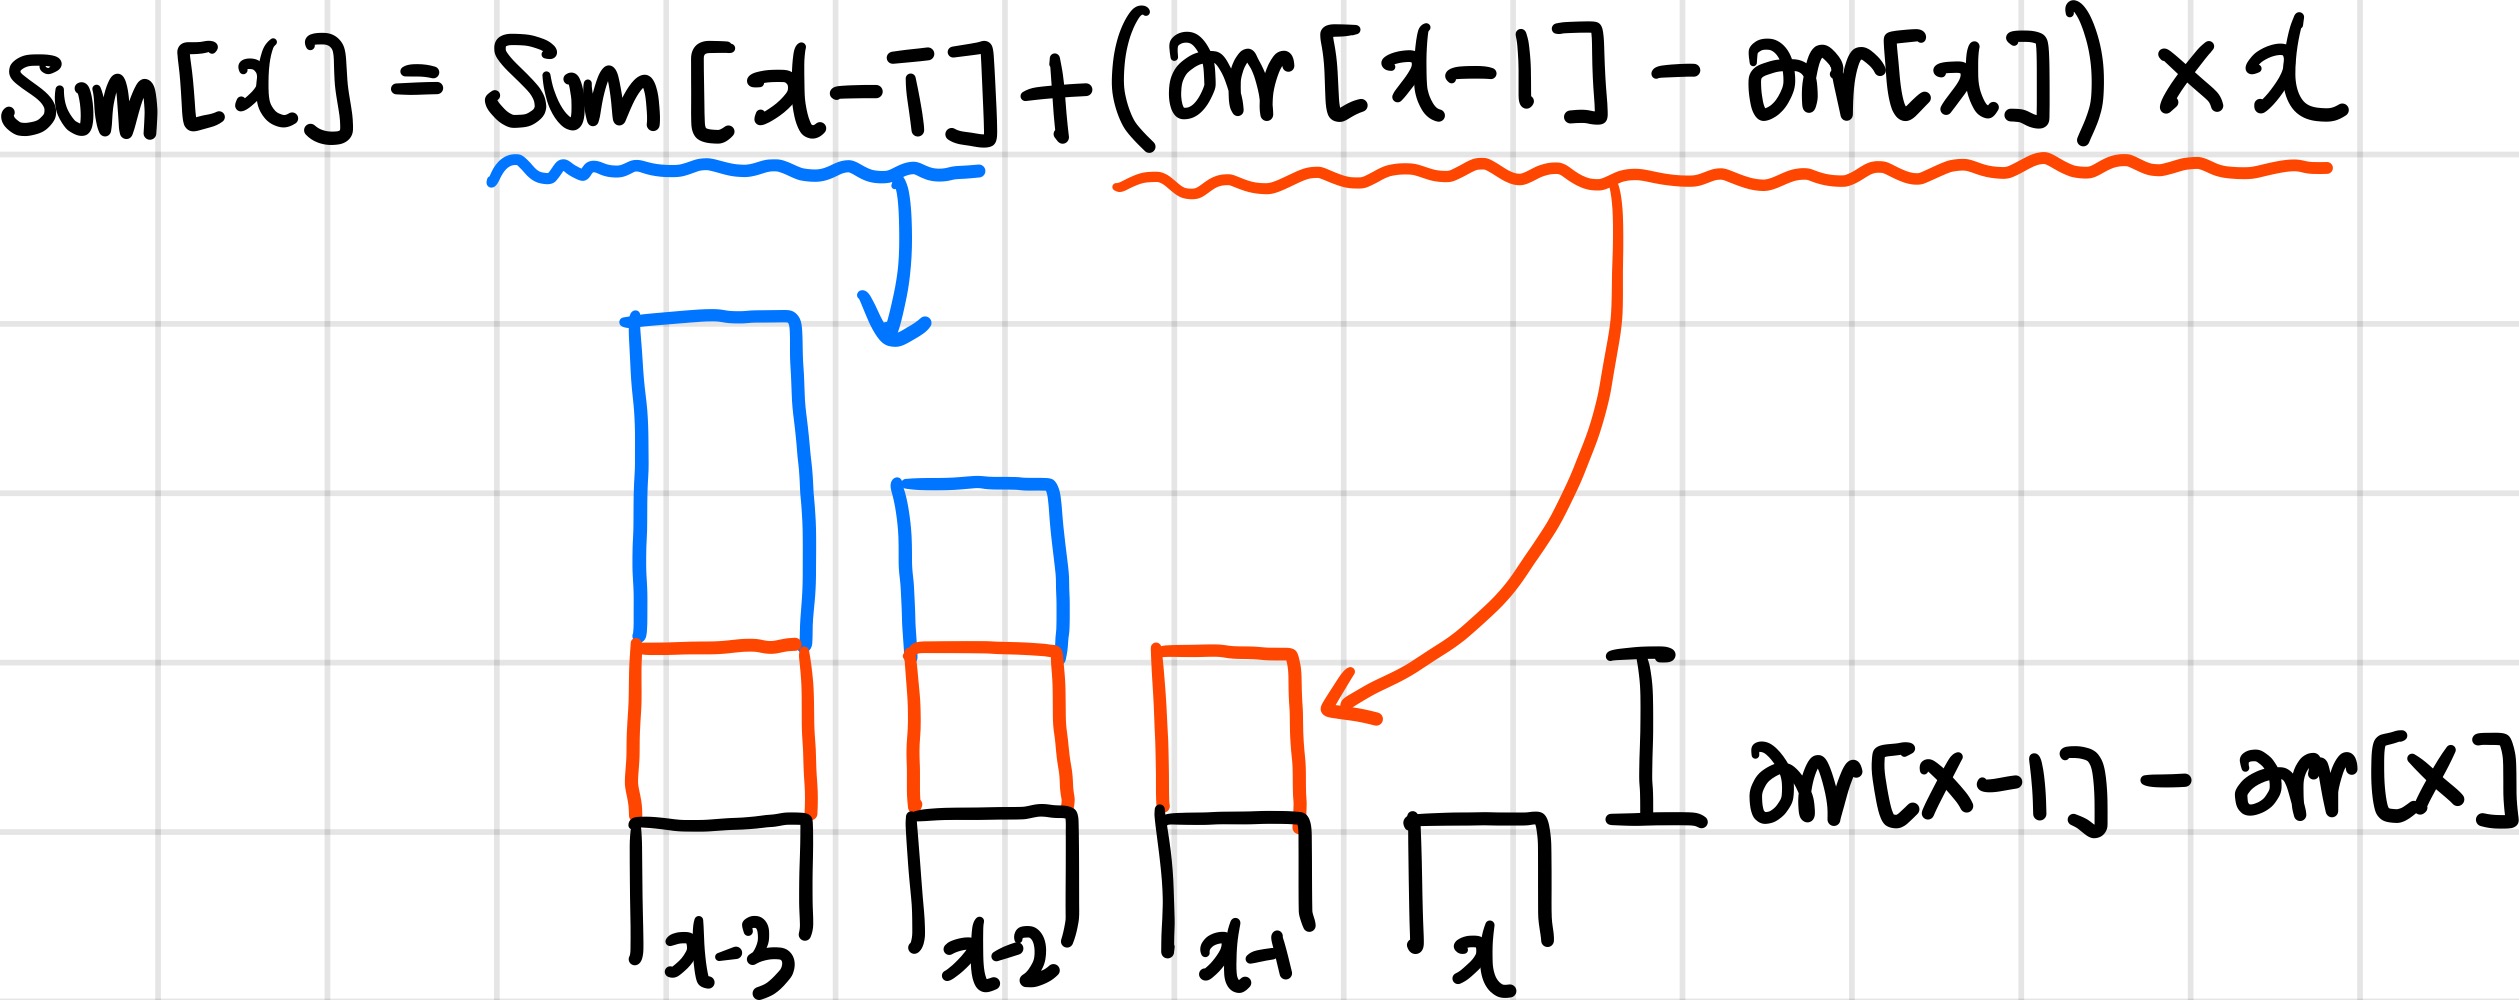 Sum[x] = Sum[x-1] + (arr[x-1] - arr[x]) × x
arr[x-1] - arr[x]
x-3 x-2 x-1 x